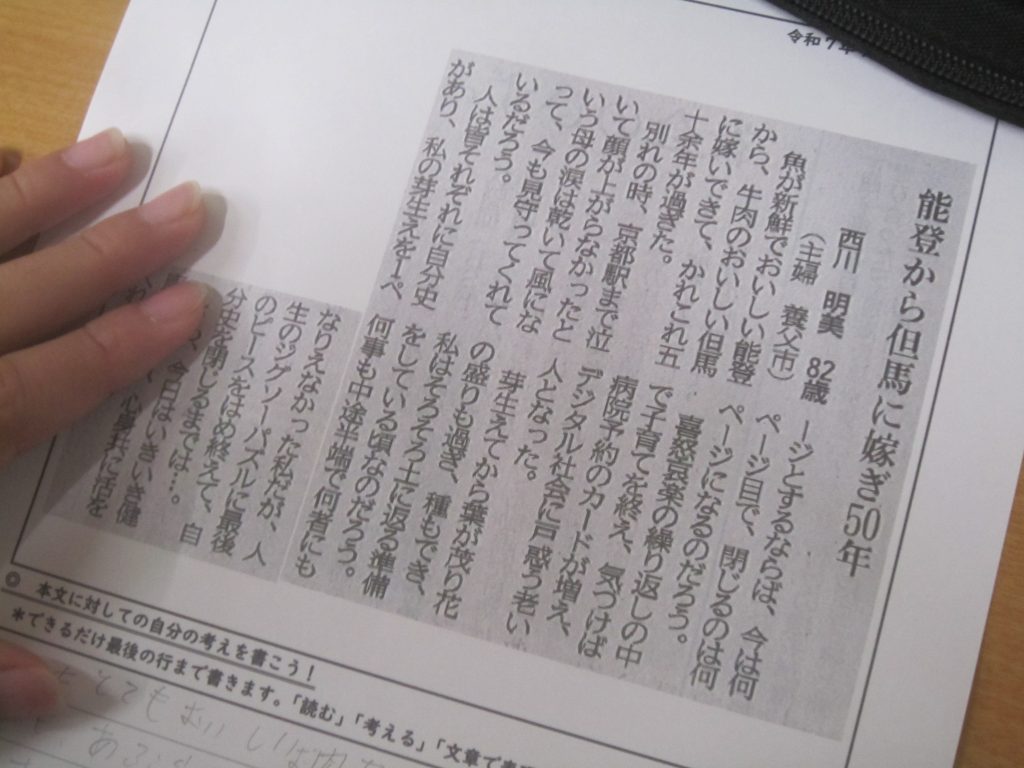 令和7年
能登から但馬に嫁ぎ50年
西川 明美 82歳
(主婦 養父市)
魚が新鮮でおいしい能登
から、牛肉のおいしい但馬
に嫁いできて、かれこれ五
十余年が過ぎた。
別れの時、京都駅まで泣
いて顔が上がらなかったと
いう母の涙は乾いて風にな
って、今も見守ってくれて
いるだろう。
人は皆それぞれに自分史
があり、私の芽生えを1ペ
ージとするならば、今は何
ページ目で、閉じるのは何
ページになるのだろう。
喜怒哀楽の繰り返しの中
で子育てを終え、気づけば
病院予約のカードが増え、
デジタル社会に戸惑う老い
人となった。
芽生えてから葉が茂り花
の盛りも過ぎ、種もでき、
私はそろそろ土に返る準備
をしている頃なのだろう。
何事も中途半端で何者にも
なりえなかった私だが、人
生のジグソーパズルに最後
のピースをはめ終えて、自
分史を閉じるまでは…。
今日はいきいき健
心身共に活を
◎ 本文に対しての自分の考えを書こう!
*できるだけ最後の行まで書きます。「読む」「考える」「文章で